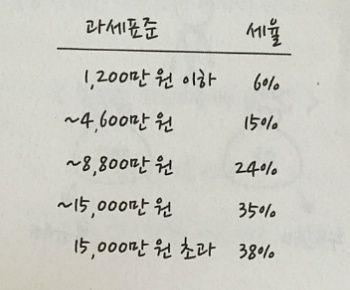 과세표준 세율
1,200만 원 이하 6%
~4,600만 원 15%
~8,800만 원 24%
~15,000만 원 35%
15,000만 원 초과 38%